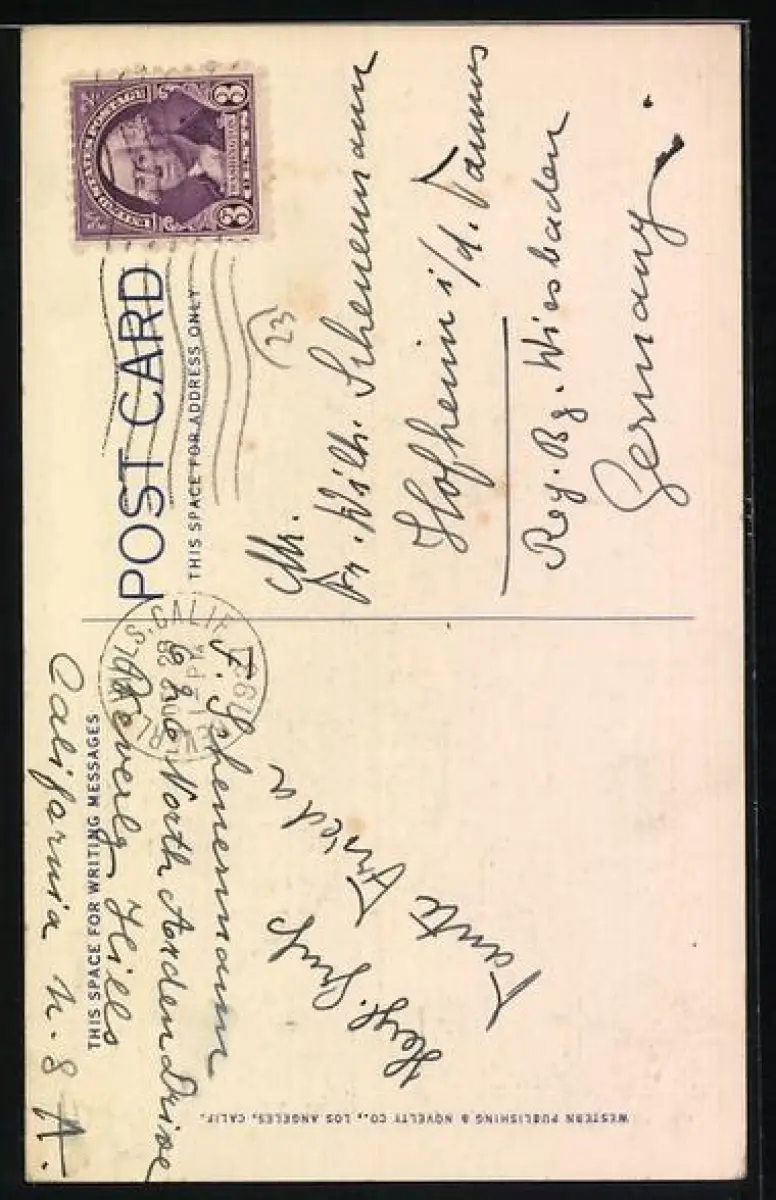 POST CARD
THIS SPACE FOR WRITING MESSAGES
THIS SPACE FOR ADDRESS ONLY
UNITED STATES POSTAGE
WASHINGTON
3 3
CALIF.
F. Scheuermann
626 North Arden Drive
Beverly Hills
California U.S.A.
Herzl. Gruß
Tante Frieda
(23)
Fr. Wilh. Scheuermann
Hofheim i/d. Taunus
Reg. Bz. Wiesbaden
Germany
WESTERN PUBLISHING & NOVELTY CO., LOS ANGELES, CALIF.